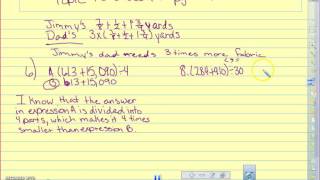 Topic
Jimmy's 7/8 + 1/2 + 1 3/4 yards
Dad's 3x(7/8 + 1/2 + 1 3/4) yards
Jimmy's dad needs 3 times more fabric
6) A. (613 + 15,090) ÷ 4 8. (284+910)-30
B 613 + 15,090
I know that the answer
in expression A is divided into
4 parts, which makes it 4 times
smaller than expression B.